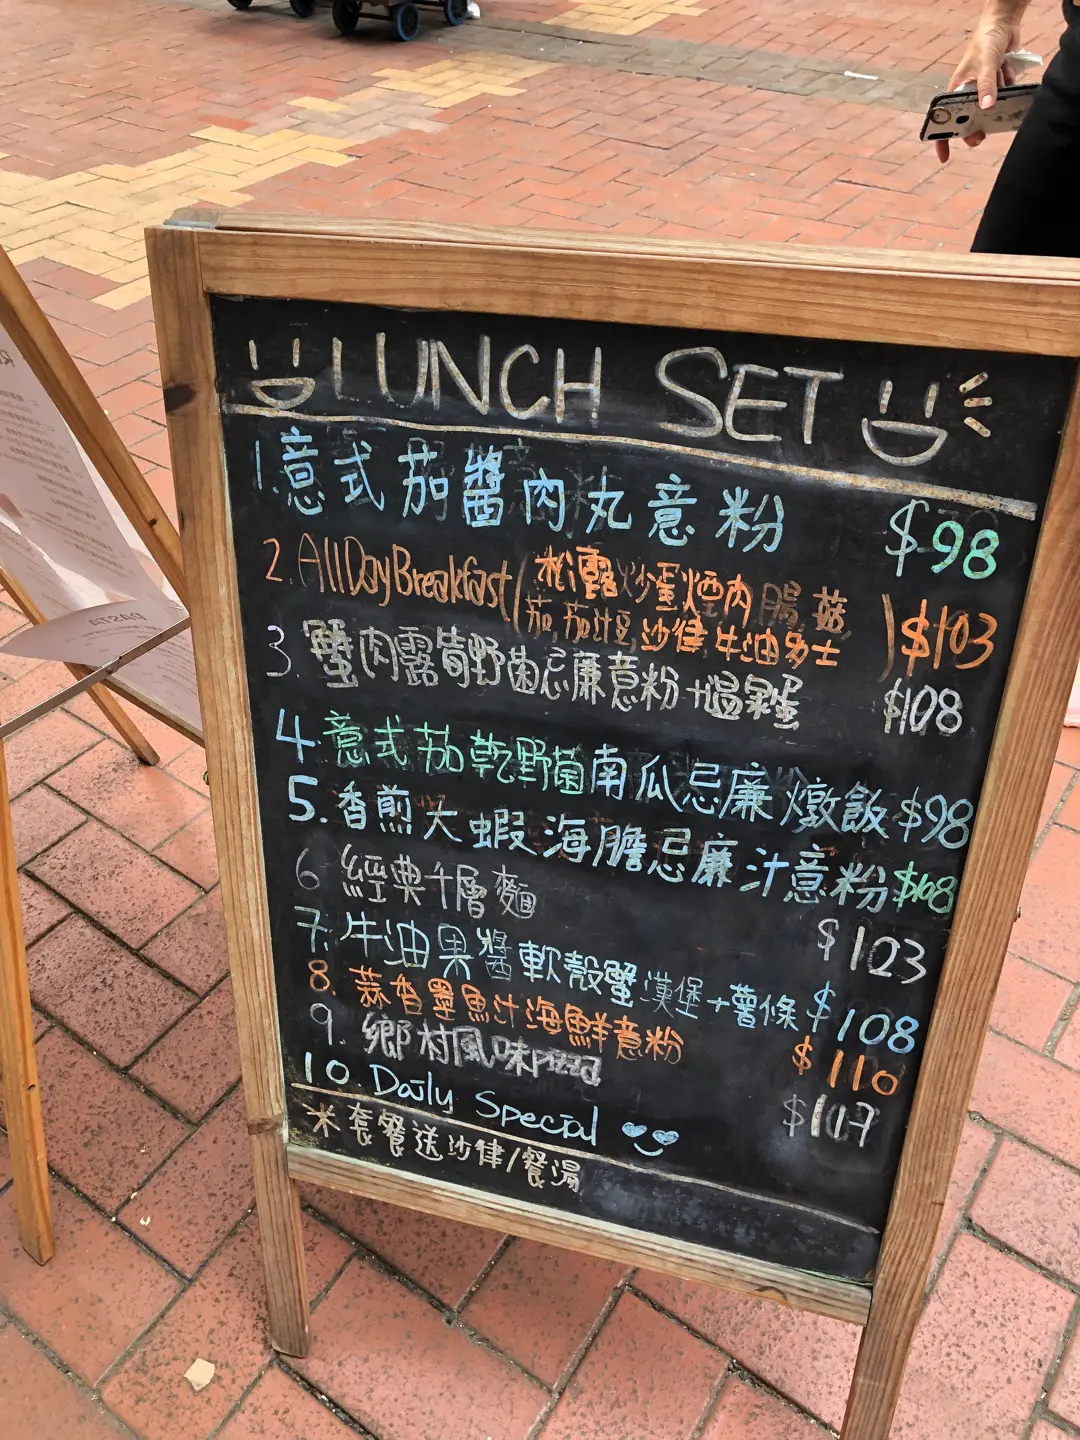 LUNCH SET
1. 意式茄醬肉丸意粉 $98
2. All Day Breakfast (松露炒蛋,煙肉,腸,菇, $103
茄,茄汁豆,沙律,牛油多士)
3. 蟹肉露筍野菌忌廉意粉+溫泉蛋 $108
4. 意式茄乾野菌南瓜忌廉燉飯 $98
5. 香煎大蝦海膽忌廉汁意粉 $108
6 經典千層麵 $103
7. 牛油果醬軟殼蟹漢堡+薯條 $108
8. 蒜香墨魚汁海鮮意粉 $110
9. 鄉村風味pizza $107
10. Daily Special
米套餐送沙律/餐湯
PASTA